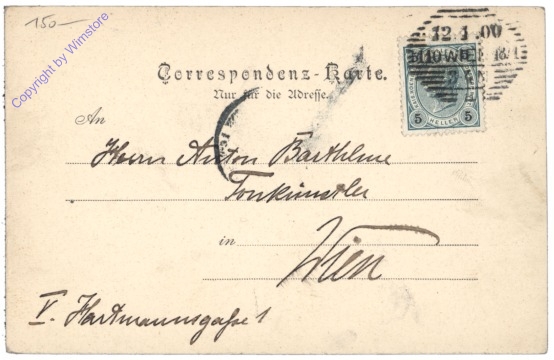 150—
Copyright by Wimstore.
12.1.00
WIEN 18/1
5 HELLER 5
Correspondenz-Karte.
Nur für die Adresse.
An
Herrn Anton Barthlme
Tonkünstler
in Wien
V. Hartmanngasse 1